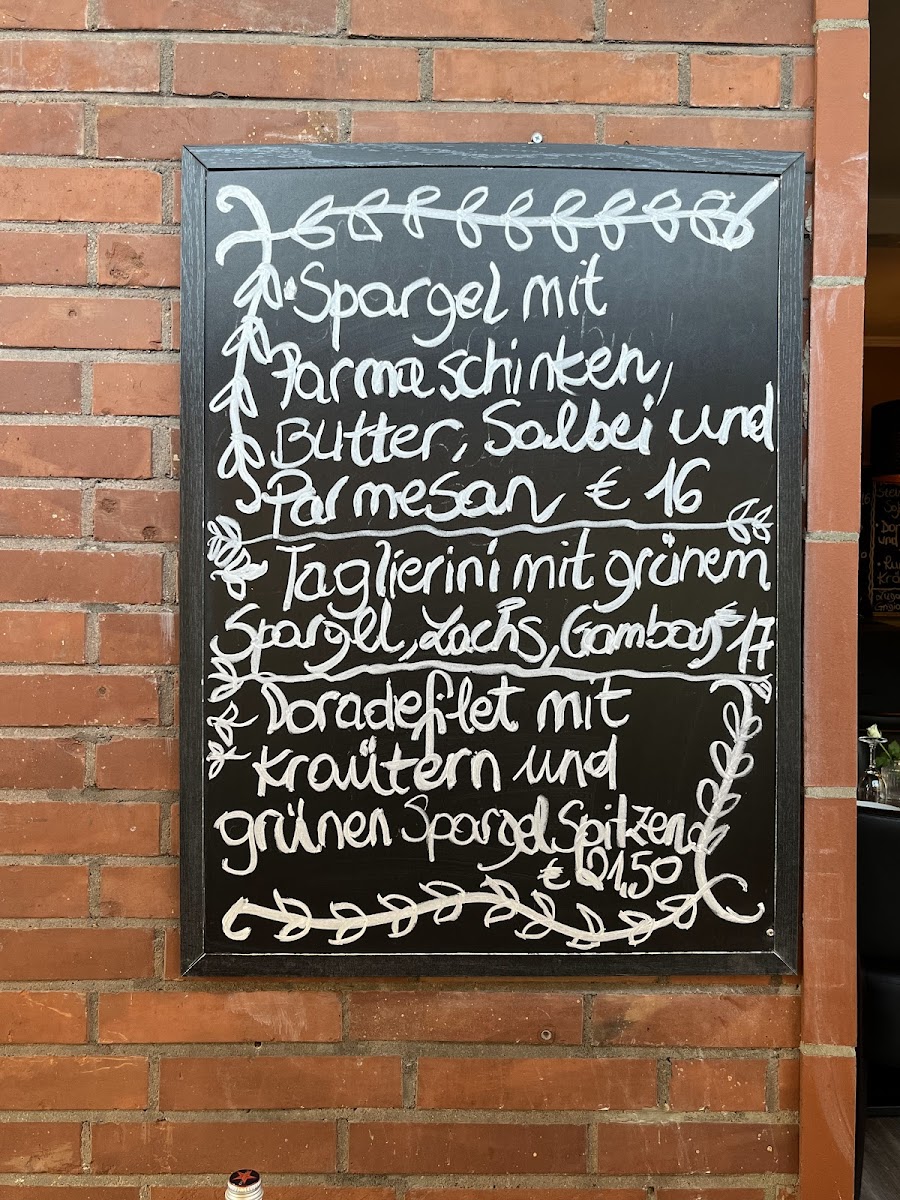 Spargel mit
Parmaschinken,
Butter, Salbei und
Parmesan € 16
Taglierini mit grünem
Spargel, Lachs, Gambas € 17
Doradefilet mit
Kraütern und
grünen Spargel Spitzen
€ 21,50